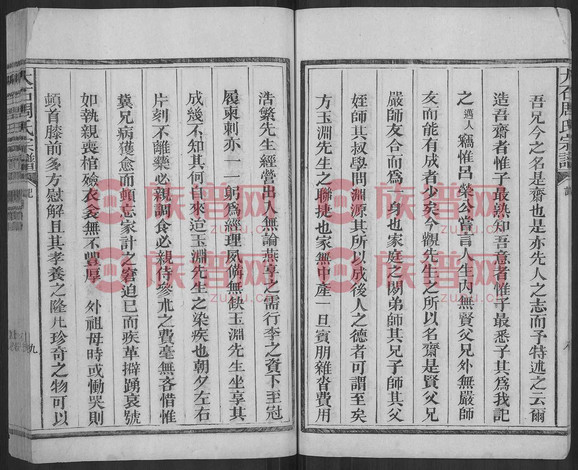 吾兄今之名是齋也是亦先人之志而予特述之云爾
造吾齋者惟子最熟知吾意者惟子最悉子其為我記
之適人竊惟呂滎公嘗言人生內無賢父兄外無嚴師
友而能有成者少矣今觀先生之所以名齋是賢父兄
嚴師友合而為一身也家庭之間弟師其兄子師其父
姪師其叔學問淵源其所以成後人之德者可謂至矣
方玉淵先生之聯捷也家無中產一旦賓朋雜沓費用
浩繁先生經營出入無論燕享之需行李之資下至冠
履柬刺亦一一躬為經理夙備無缺玉淵先生坐享其
成幾不知其何自來迨玉淵先生之染疾也朝夕左右
片刻不離藥必親調食必親侍參朮之費毫無吝惜惟
冀兄病獲愈而頓忘家計之窘迫已而疾革擗踴哀號
如執親喪棺殮衣衾無不豐厚 外祖母時或慟哭則
頓首膝前多方慰解且其孝養之隆凡珍奇之物可以
大谷周氏宗譜
記
九
族譜网
zupu.cn